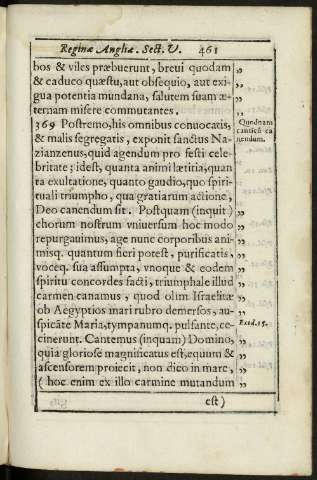 Reginæ Angliæ. Sect. V. 461
bos & viles præbuerunt, brevi quodam „
& caduco quæstu, aut obsequio, aut exi- „
gua potentia mundana, salutem suam æ- „
ternam misere commutantes. „
369 Postremo, his omnibus convocatis,
Quodnam
canticũ ca
nendum.
& malis segregatis, exponit sanctus Na-
zianzenus, quid agendum pro festi cele-
britate; idest, quanta animi lætitia, quan
ta exultatione, quanto gaudio, quo spiri-
tuali triumpho, qua gratiarum actione,
Deo canendum sit. Postquam (inquit) „
chorum nostrum vniuersum hoc modo „
repurgauimus, age nunc corporibus ani- „
misq. quantum fieri potest, purificatis, „
voceq. sua assumpta, vnoque & eodem „
spiritu concordes facti, triumphale illud „
carmen canamus, quod olim Israelitæ „
ob Aegyptios mari rubro demersos, au- „
spicãte Maria, tympanumq. pulsante, ce- Exod. 15.
cinerunt. Cantemus (inquam) Domino, „
quia gloriose magnificatus est, equum & „
ascensorem proiecit, non dico in mare, „
(hoc enim ex illo carmine mutandum „
est)